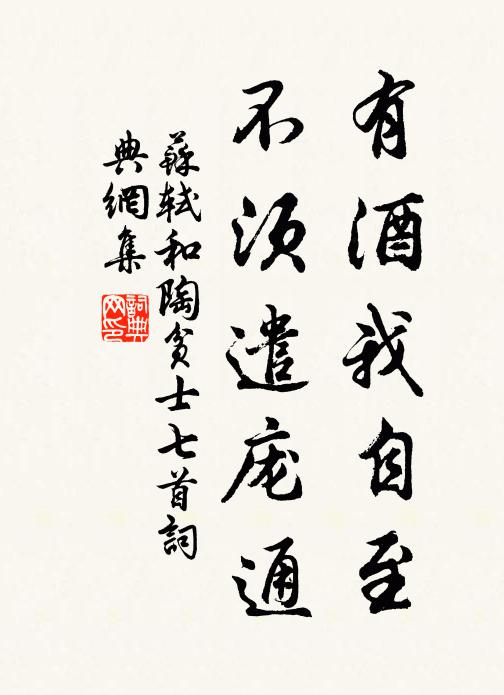 有酒我自至
不須遣庞通
蘇軾和陶貧士七首詞
典網集
詞典
网印